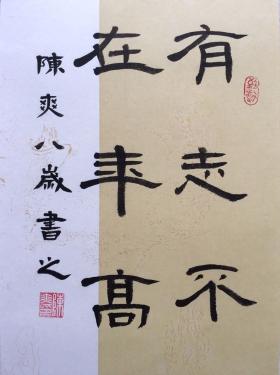 有志不
在年高
陳爽八歲書之